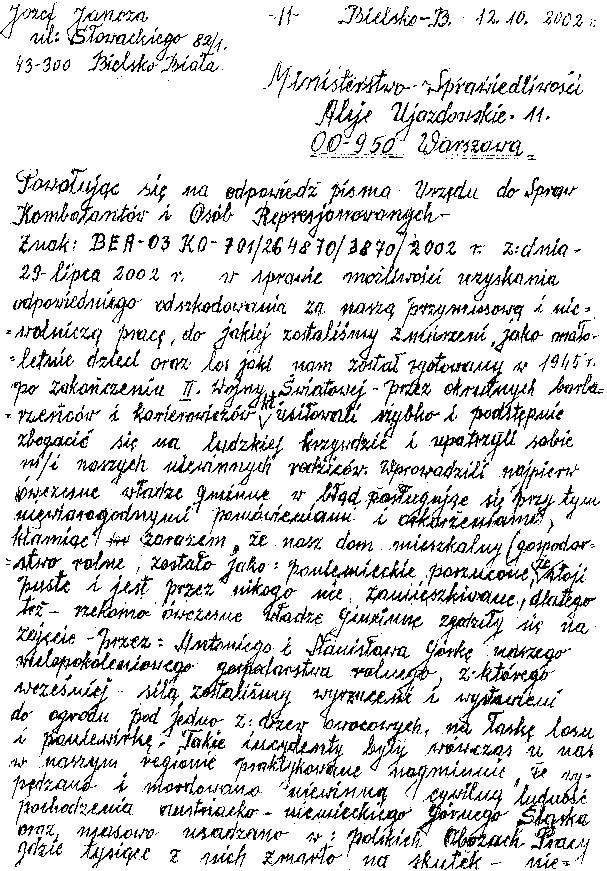 Józef Jancza -11- Bielsko-B. 12.10.2002 r.
ul: Słowackiego 82/1.
43-300 Bielsko Biała
Ministerstwo Sprawiedliwości
Aleje Ujazdowskie 11.
00-950 Warszawa
Powołując się na odpowiedź pisma Urzędu do Spraw
Kombatantów i Osób Represjonowanych-
Znak: BEA-03 KO-701/264870/3870/2002 r. z:dnia-
29-lipca 2002 r. w sprawie możliwości uzyskania
odpowiedniego odszkodowania za naszą przymusową i nie-
-wolniczą pracę, do jakiej zostaliśmy zmuszeni jako mało-
-letnie dzieci oraz los jaki nam został zgotowany w 1945 r.
po zakończeniu II. Wojny Światowej - przez okrutnych barba-
-rzeńców i karierowiczów kt. usiłowali szybko i podstępnie
zbogacić się na ludzkiej krzywdzie i upatrzyli sobie
m/i naszych niewinnych rodziców. Wprowadzili najpierw
ówczesne władze gminne w błąd posługując się przy tym
niewiarogodnymi pomówieniami i oskarżeniami,
kłamiąc zarazem, że nasz dom mieszkalny (gospodar-
-stwo rolne, zostało jako: poniemieckie, porzucone, że stoji
puste i jest przez nikogo nie zamieszkiwane, dlatego
też - rzekomo ówczesne Władze Gminne zgodziły się na
zajęcie - przez: Antoniego i Stanisława Górkę naszego
wielopokoleniowego gospodarstwa rolnego, z:którego
wcześniej - siłą zostaliśmy wyrzuceni i wystawieni
do ogrodu pod jedno z: drzew owocowych, na łaskę losu
i poniewirkę. Takie incydenty były wówczas u nas
w naszym regionie praktykowane nagminnie, że wy-
pędzano i mordowano niewinną cywilną ludność
pochodzenia austriacko-niemieckiego Górnego Śląska
oraz masowo wsadzano w: polskich Obozach Pracy
gdzie tysiące z nich zmarło na skutek - nie=